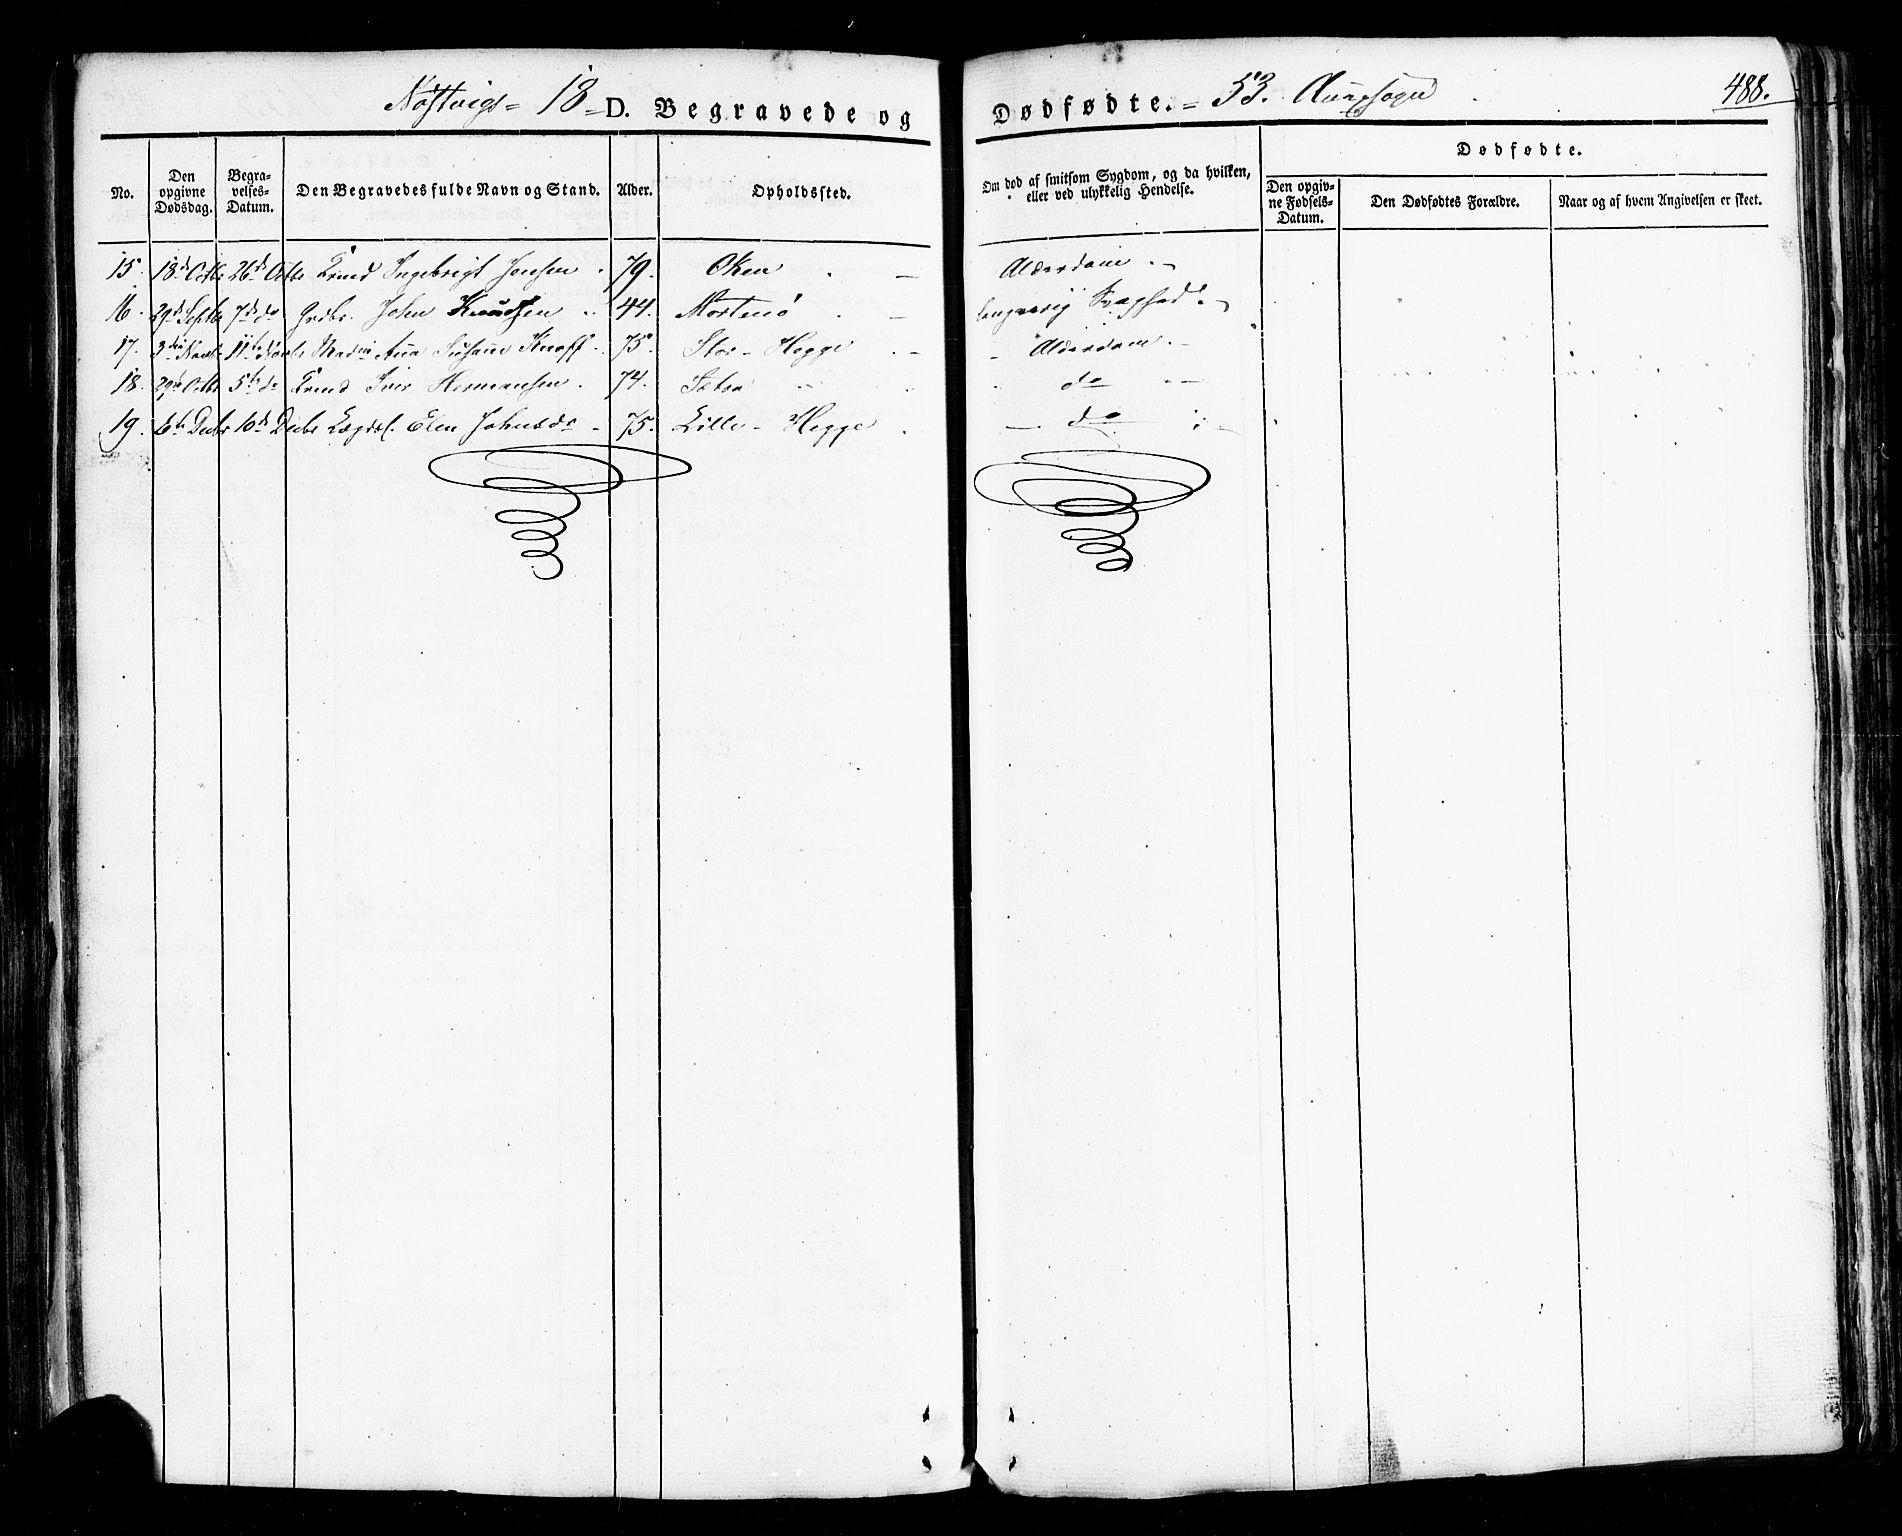 Nøstvigs = 18 = D. Begravede og Dødfødte. = 53. Annexsogn 488.
No. Den opgivne Dødsdag. Begravelses-Datum. Den Begravedes fulde Navn og Stand. Alder. Opholdssted. Om død af smitsom Sygdom, og da hvilken, eller ved ulykkelig Hendelse. Dødfødte. Den opgivne Fødsels-Datum. Den Dødfødtes Forældre. Naar og af hvem Angivelsen er skeet.
15. 18d Octbr 26d Octbr Ingebrigt Jensen. 79. Oken — Alderdom. —
16. 29d Septbr 7d do Grdbr. John Knudsen 44. Mortenö — Svaghed. —
17. 3die Novbr 11te Novbr Madm Ana Susane Knoff 75. Stor-Hegge — Alderdom. —
18. 29d Octbr 5te do Iver Hermansen. 74. Sætra do —
19. 6te Decbr 10d Decbr Lægdsl. Elen Johnsdr 75. Lille-Hegge — do —